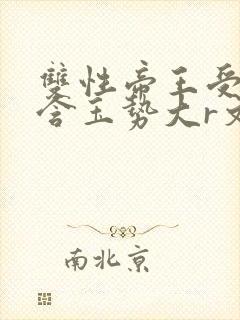 雙性帝王受
含玉势大r文
南北京